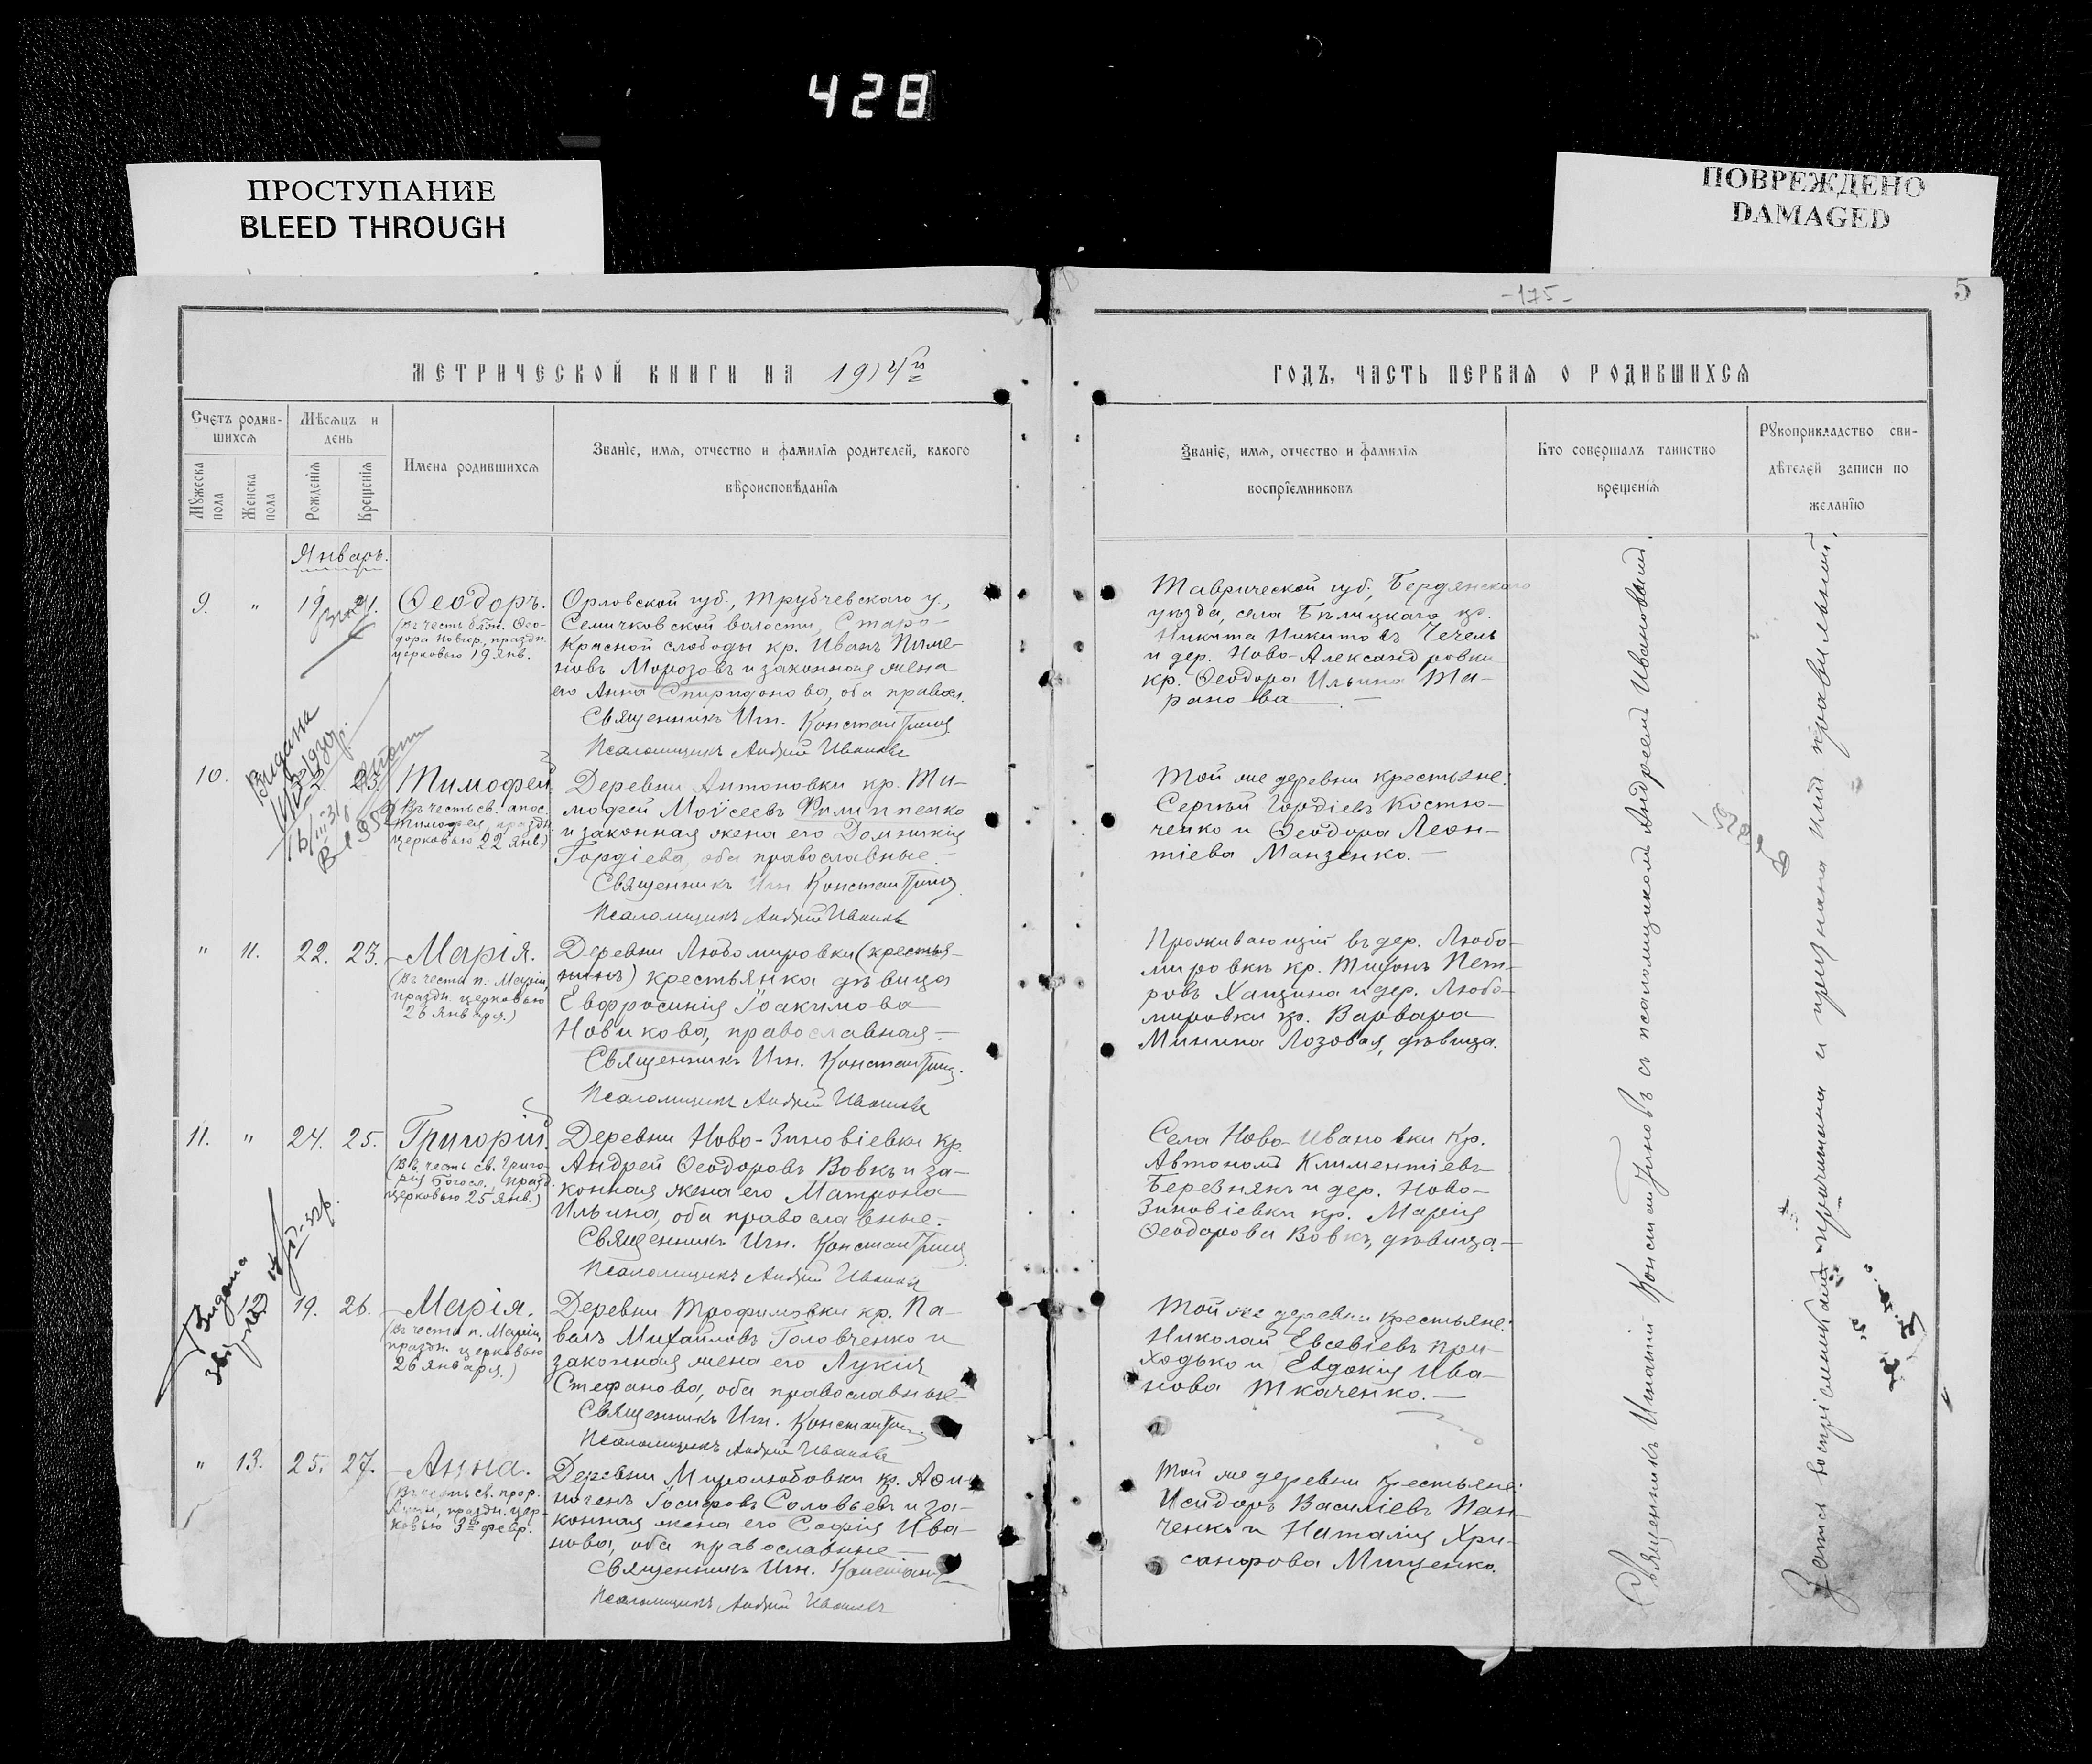 428
ПРОСТУПАНИЕ
BLEED THROUGH
ПОВРЕЖДЕНО
DAMAGED
-175-
5
МЕТРИЧЕСКОЙ КНИГИ НА 1914й
ГОДЪ, ЧАСТЬ ПЕРВАЯ О РОДИВШИХСЯ
Счетъ родив-
шихся
Мужеска
пола
Женска
пола
Мѣсяцъ и
день
Рожденія
Крещенія
Имена родившихся
Званіе, имя, отчество и фамилія родителей, какого
вѣроисповѣданія
Званіе, имя, отчество и фамилія
воспріемниковъ
Кто совершалъ таинство
крещенія
Рукоприкладство сви-
дѣтелей записи по
желанію
Январь.
9. " 19 21. Ѳеодоръ.
(Въ честь блж. Ѳео-
дора Новгор., праздн.
церковью 19 янв.
Орловской губ., Трубчевскаго у.,
Семичковской волости, Старо-
Красной слободы кр. Иванъ Пиме-
новъ Морозовъ и законная жена
его Анна Спиридонова, оба правосл.
Священникъ Игн. Константинов
Псаломщикъ Андрей Иванов
Таврической губ., Бердянскаго
уѣзда, села Бѣлицкаго кр.
Никита Никитовъ Чечель
и дер. Ново-Александровки
кр. Ѳеодора Ильина Та-
ранова
Выдана
10. 23. Тимофей
(Въ честь св. апос.
Тимофея, праздн.
церковью 22 янв.)
Деревни Антоновки кр. Ти-
мофей Моѵсеевъ Филиппенко
и законная жена его Домникія
Гордіева, оба православные.
Священникъ Игн. Константинов
Псаломщикъ Андрей Иванов
Той же деревни крестьяне:
Сергѣй Гордіевъ Костю-
ченко и Ѳеодора Леон-
тіева Манзенко.
" 11. 22. 23. Марія.
(Въ честь п. Маріи,
праздн. церковью
26 января.)
Деревни Любомировки (крестья-
нинъ) крестьянка дѣвица
Евфросинія Іоакимова
Новикова, православная.
Священникъ Игн. Константинов.
Псаломщикъ Андрей Иванов
Проживающій въ дер. Любо-
мировкѣ кр. Тихонъ Пет-
ровъ Хащина и дер. Любо-
мировки кр. Варвара
Минина Лозовая, дѣвица.
11. " 24. 25. Григорій.
(Въ честь св. Григо-
рія Богосл., празд.
церковью 25 янв.)
Деревни Ново-Зиновіевки кр.
Андрей Ѳеодоровъ Вовкъ и за-
конная жена его Матрона
Ильина, оба православные.
Священникъ Игн. Константинов
Псаломщикъ Андрей Иванов
Села Ново-Ивановки кр.
Автономъ Климентіевъ
Березнякъ и дер. Ново-
Зиновіевки кр. Марія
Ѳеодорова Вовкъ, дѣвица.
12 19. 26. Марія.
(Въ честь п. Маріи,
праздн. церковью
26 января.)
Деревни Трофимовки кр. Па-
велъ Михайловъ Головченко и
законная жена его Лукія
Стефанова, оба православные
Священникъ Игн. Константинов.
Псаломщикъ Андрей Иванов
Той же деревни крестьяне:
Николай Евсевіевъ При-
ходько и Евдокія Ива-
нова Ткаченко.
" 13. 25. 27. Анна.
(Въ честь св. прор.
Анны, праздн. цер-
ковью 3го февр.
Деревни Миролюбовки кр. Аѳи-
ногенъ Іосифовъ Соловьевъ и за-
конная жена его Софія Ива-
нова, оба православные
Священникъ Игн. Константинов
Псаломщикъ Андрей Иванов
Той же деревни крестьяне:
Исидоръ Василіевъ Пан-
ченко и Наталія Хри-
санфова Мищенко.
Священникъ Игнатій Константиновъ съ псаломщикомъ Андреемъ Ивановымъ.